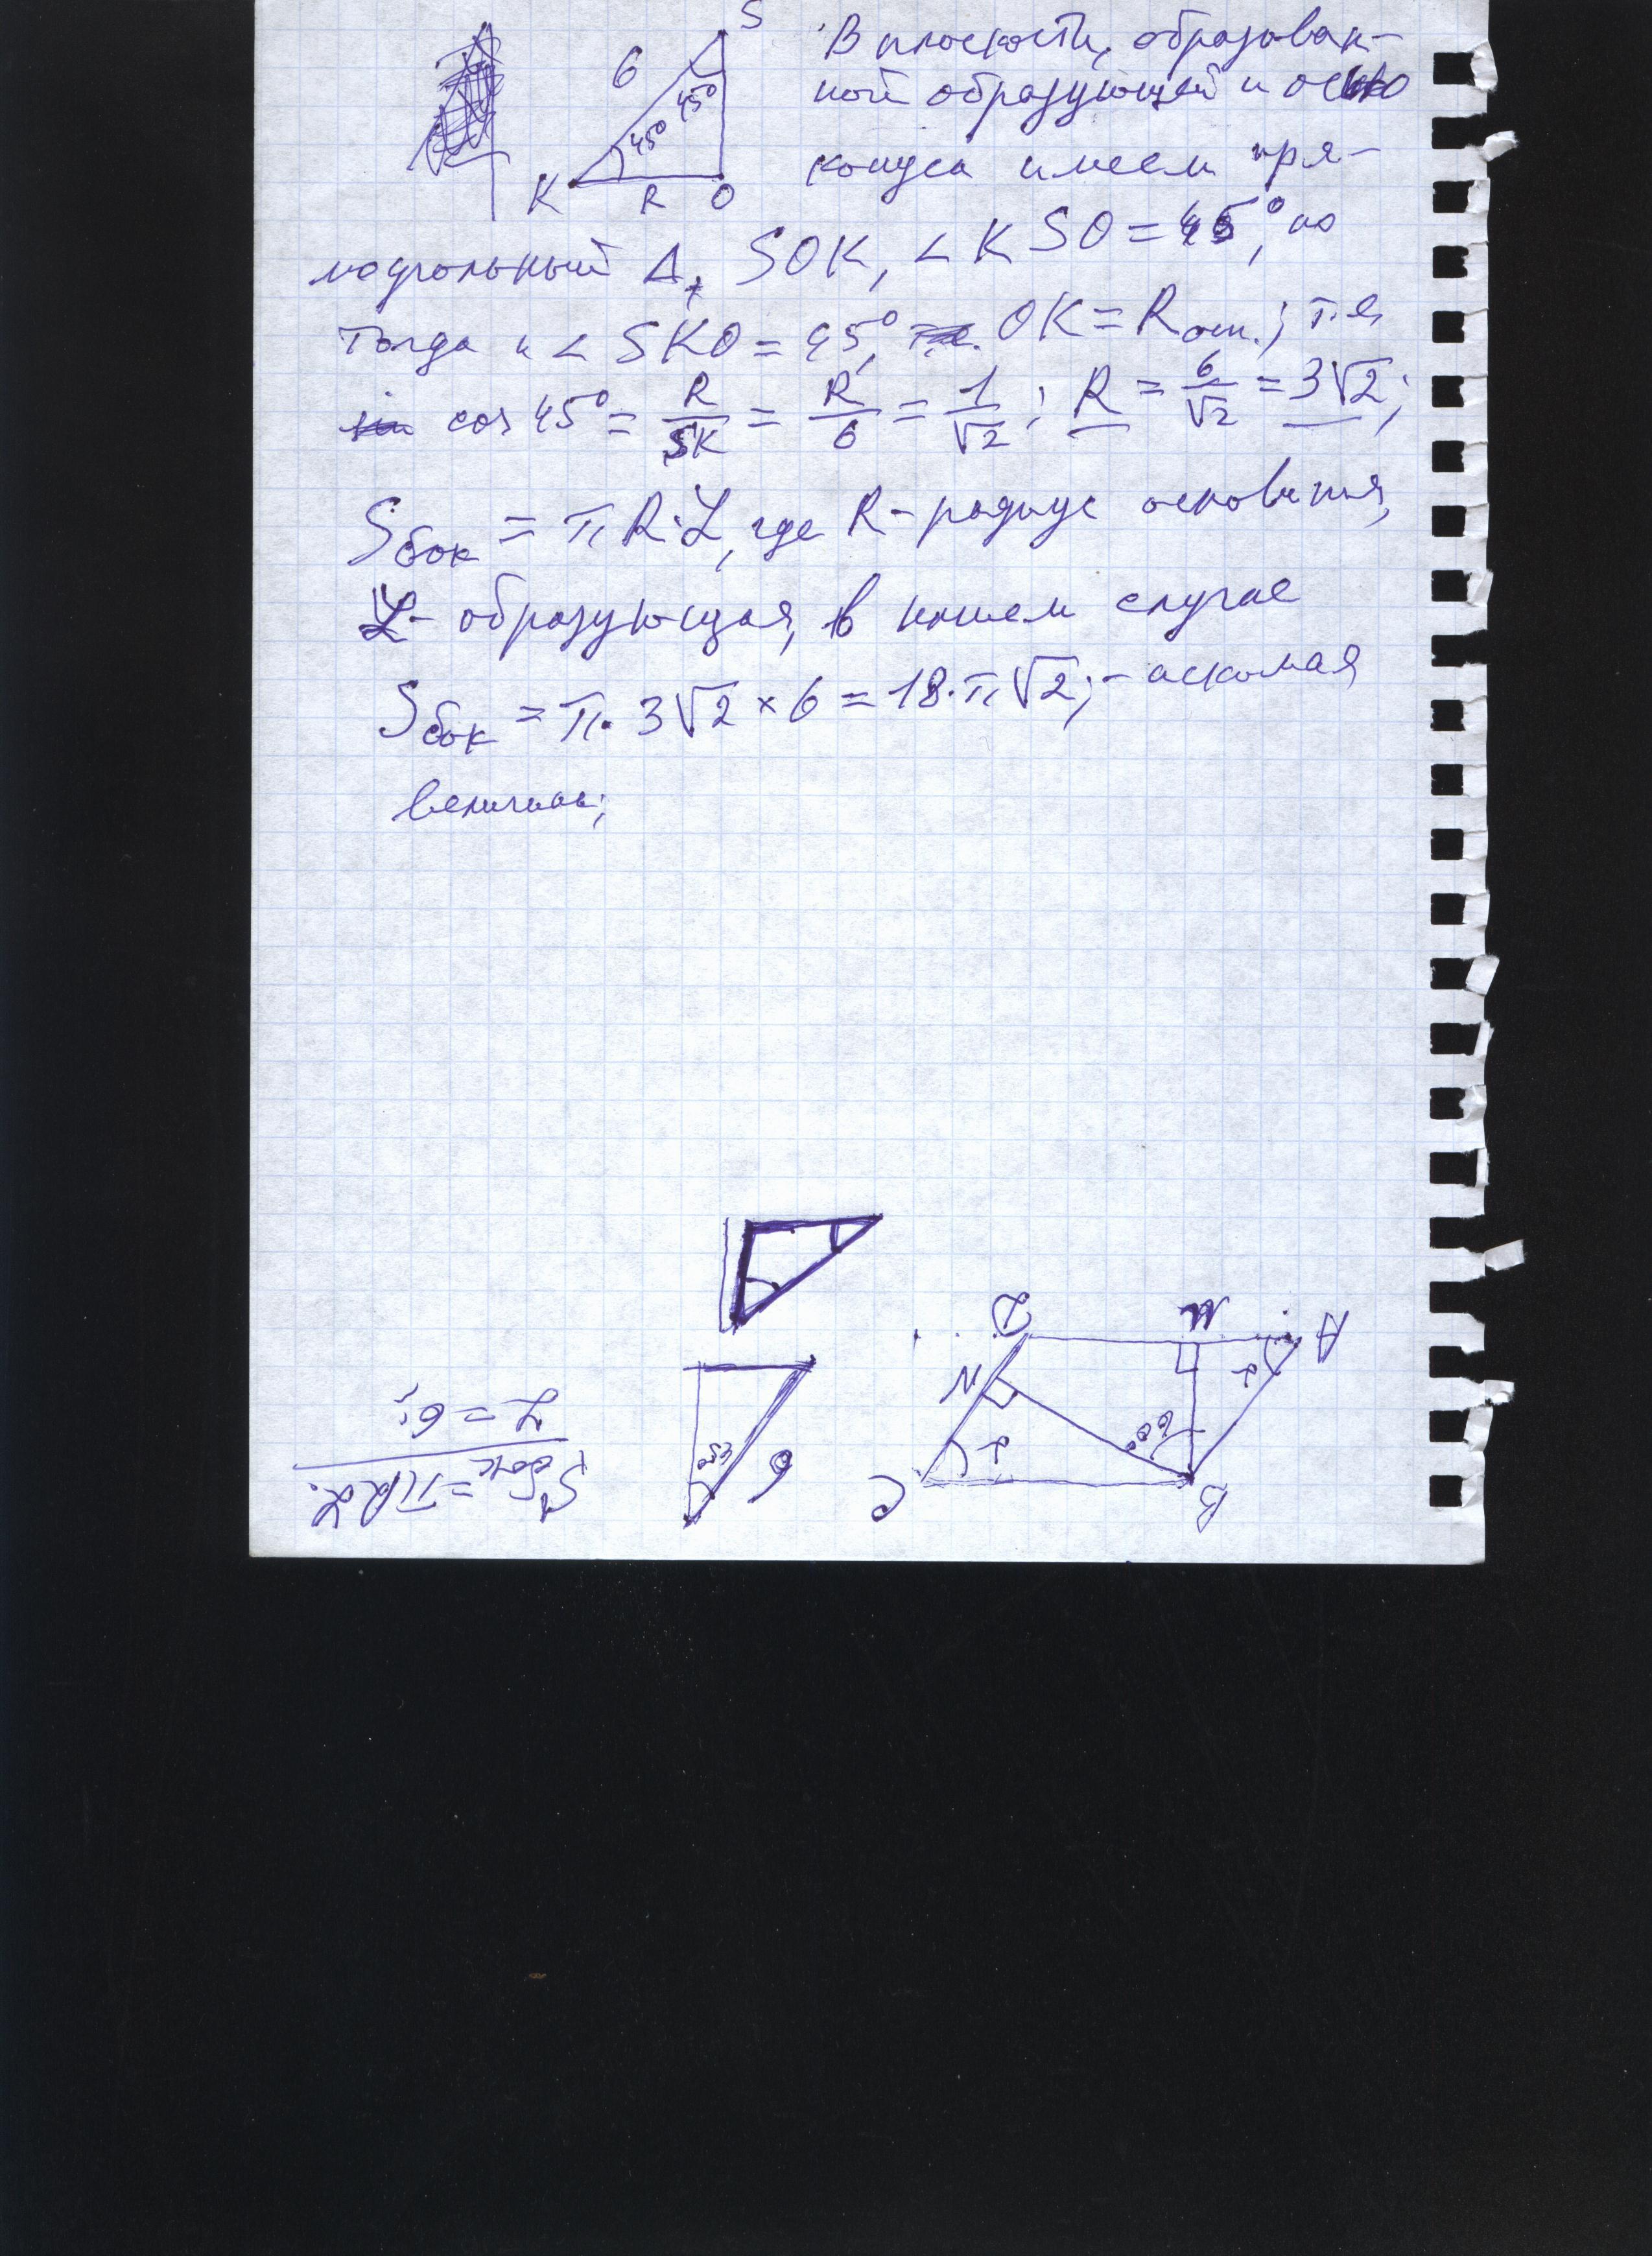 S
6
45°
45°
K
R
O
В плоскости, образован-
ной образующей и осью
конуса имеем пря-
моугольный Δ, SOK, ∠KSO = 45°, но
тогда и ∠SKO = 45°, OK = R осн.; т.е.
cos 45° = R/SK = R/6 = 1/√2; R = 6/√2 = 3√2;
Sбок = πR·L, где R - радиус основания,
L - образующая, в нашем случае
Sбок = π·3√2 × 6 = 18·π√2; - искомая
величина;
D
M
A
N
α
L = 6;
45°
6
60°
α
Sбок = πRL.
C
B